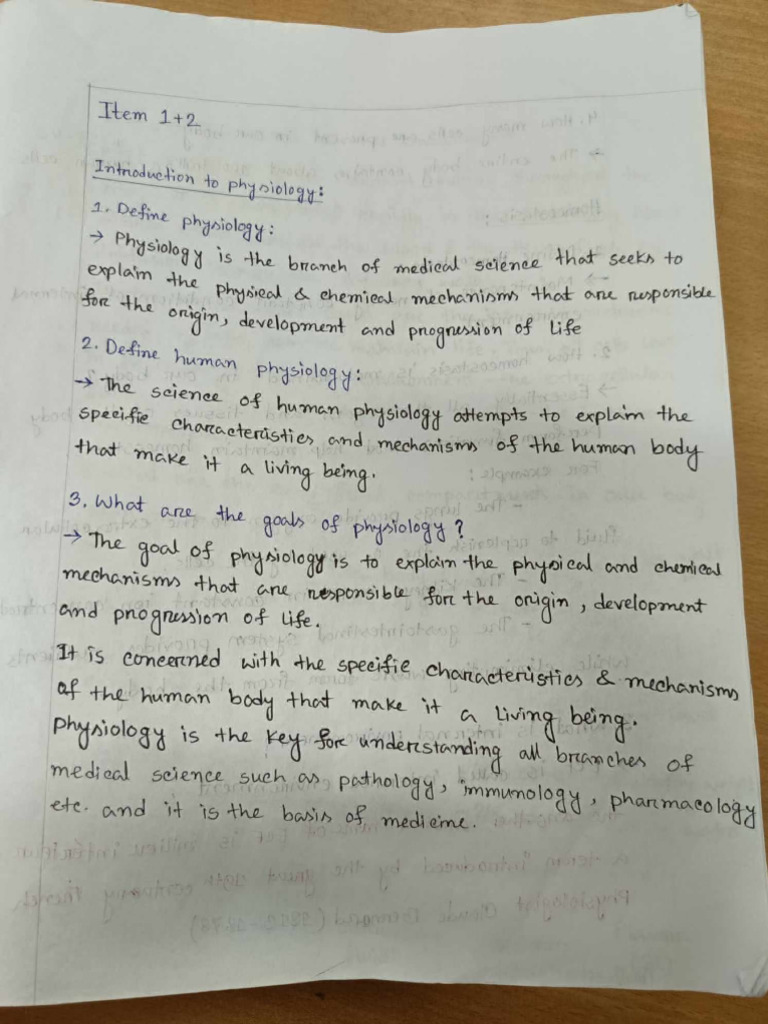 Item 1+2
Introduction to physiology:
1. Define physiology:
→ Physiology is the branch of medical science that seeks to
explain the physical & chemical mechanisms that are responsible
for the origin, development and progression of life
2. Define human physiology:
→ The science of human physiology attempts to explain the
specific characteristics and mechanisms of the human body
that make it a living being.
3. What are the goals of physiology?
→ The goal of physiology is to explain the physical and chemical
mechanisms that are responsible for the origin, development
and progression of life.
It is concerned with the specific characteristics & mechanisms
of the human body that make it a living being.
Physiology is the key for understanding all branches of
medical science such as pathology, immunology, pharmacology
etc. and it is the basis of medicine.